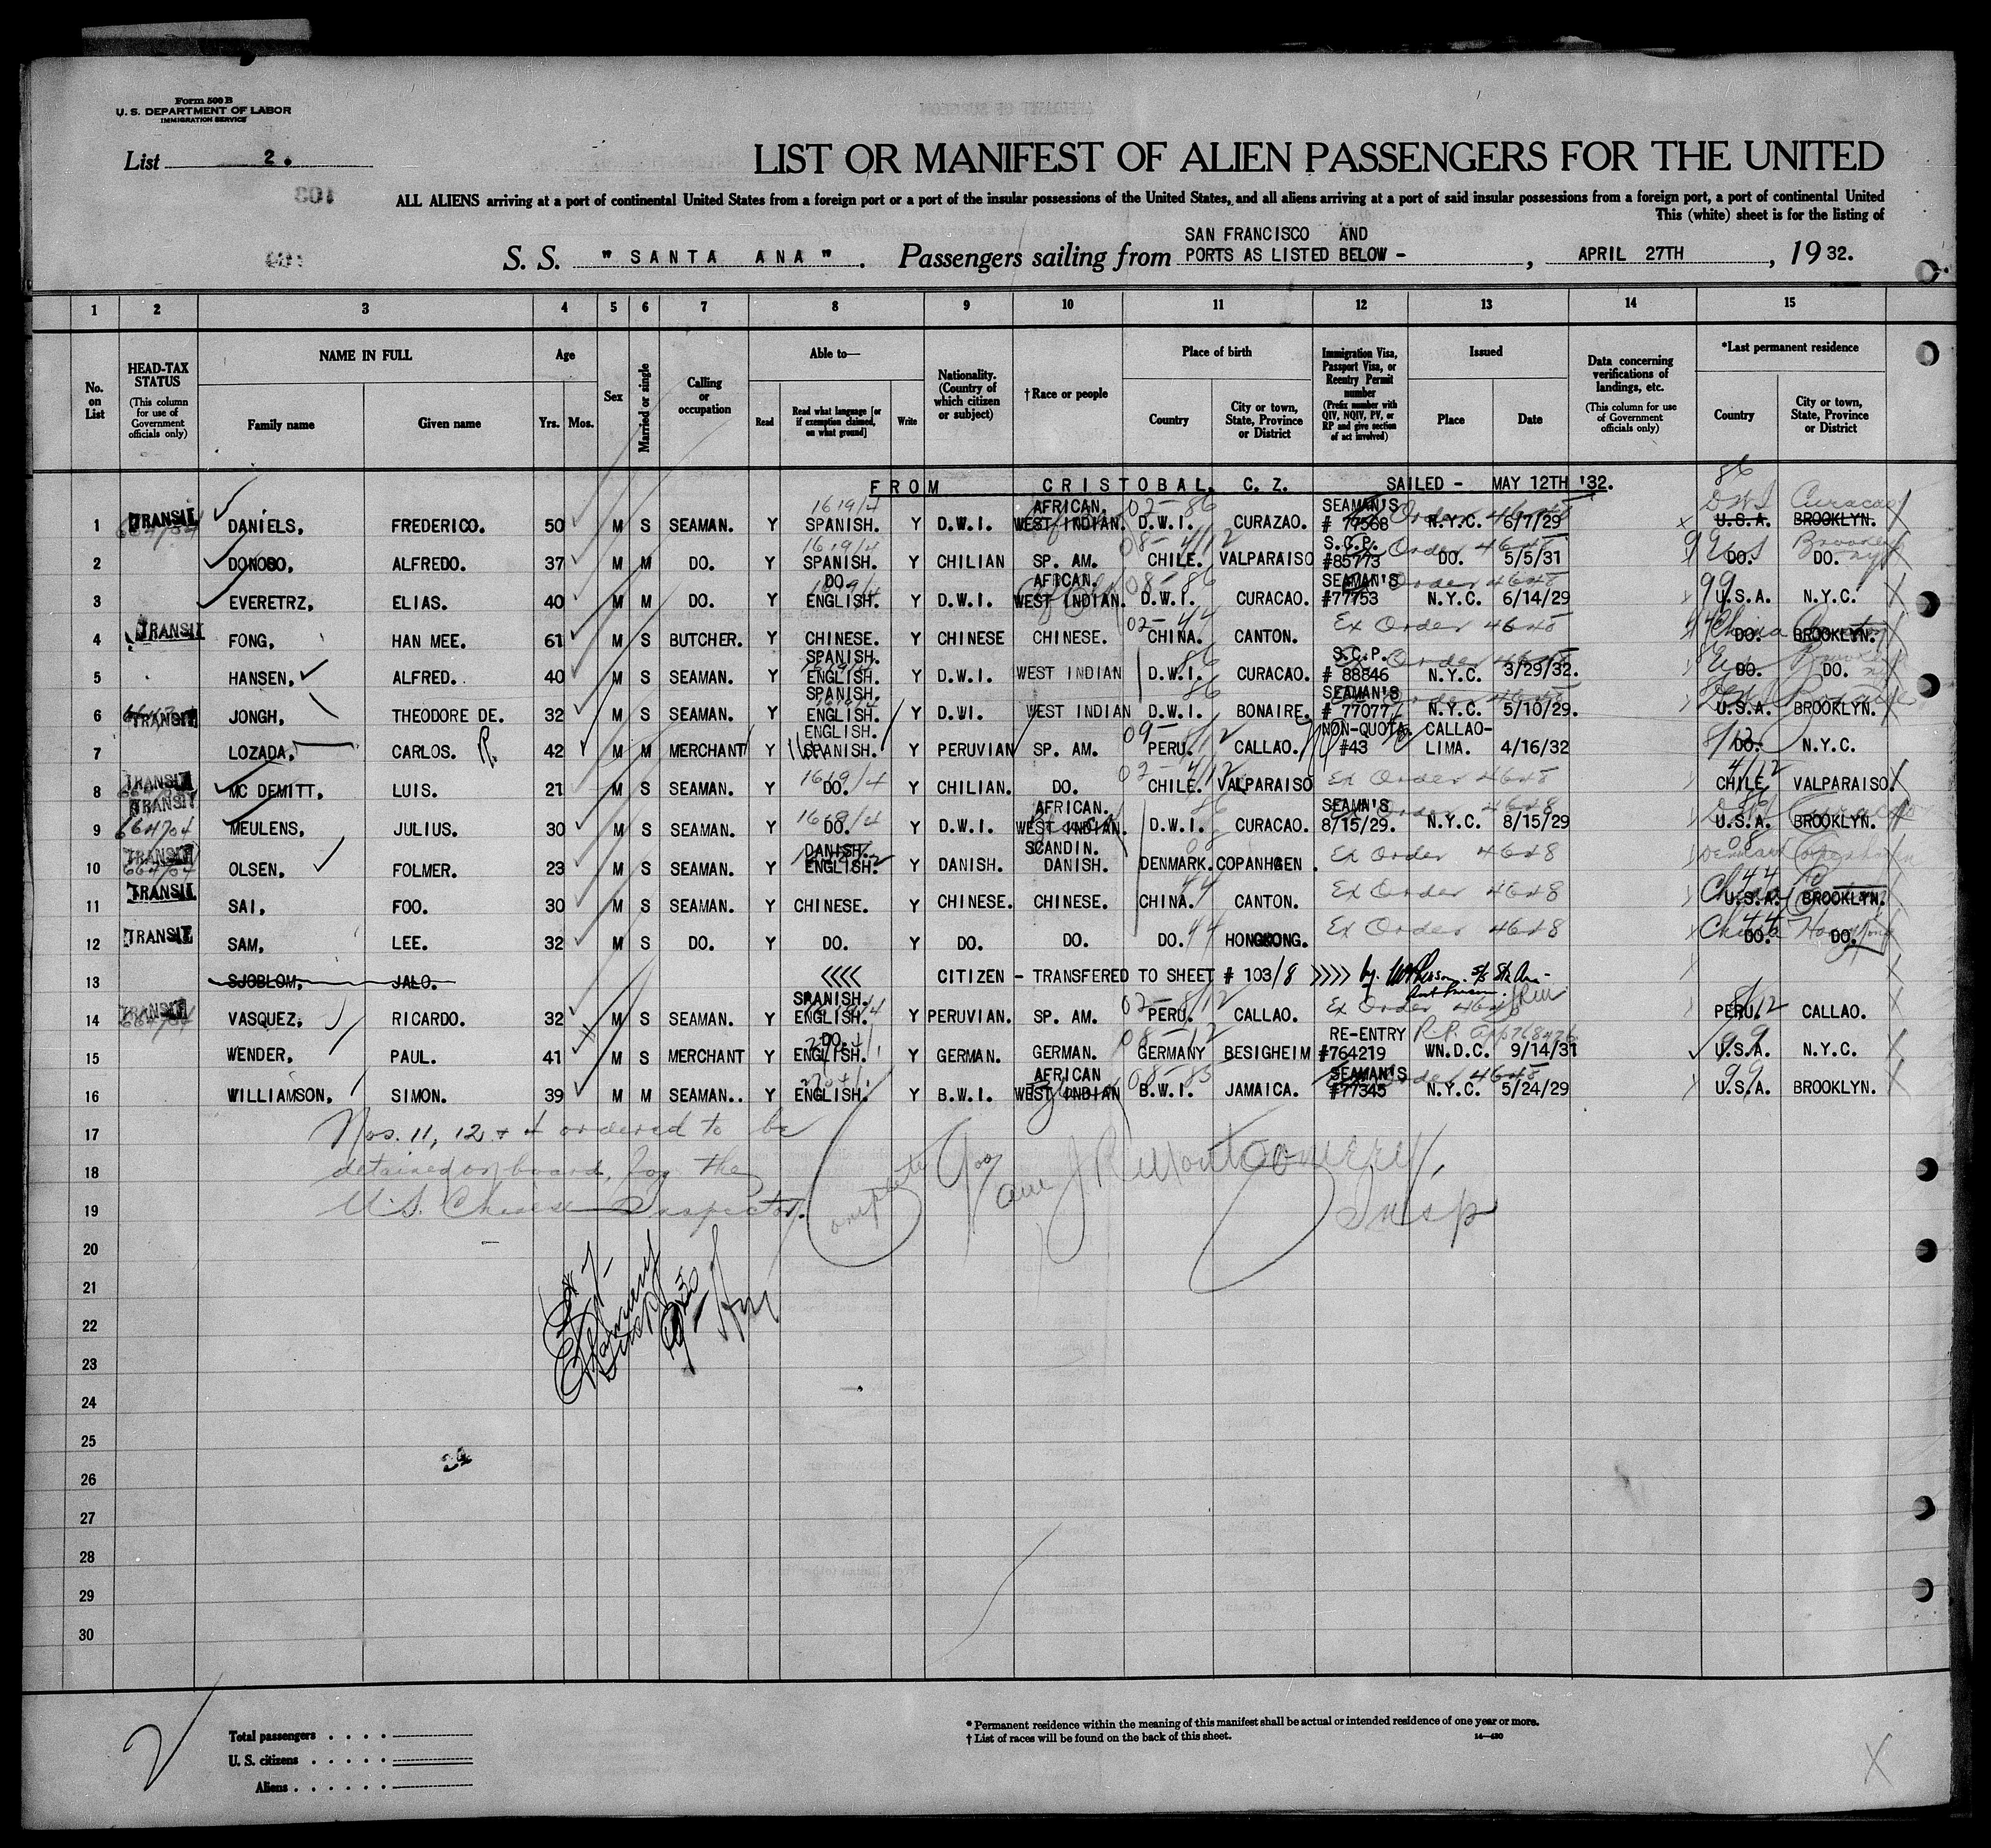 Form 500 B
U. S. DEPARTMENT OF LABOR
IMMIGRATION SERVICE
List 2.
LIST OR MANIFEST OF ALIEN PASSENGERS FOR THE UNITED
ALL ALIENS arriving at a port of continental United States from a foreign port or a port of the insular possessions of the United States, and all aliens arriving at a port of said insular possessions from a foreign port, a port of continental United
This (white) sheet is for the listing of
S. S. " SANTA ANA ". Passengers sailing from SAN FRANCISCO AND PORTS AS LISTED BELOW - , APRIL 27TH , 19 32.
1 2 3 4 5 6 7 8 9 10 11 12 13 14 15
No. on List
HEAD-TAX STATUS (This column for use of Government officials only)
NAME IN FULL Family name Given name
Age Yrs. Mos.
Sex
Married or single
Calling or occupation
Able to— Read Read what language [or if exemption claimed, on what ground] Write
Nationality. (Country of which citizen or subject)
† Race or people
Place of birth Country City or town, State, Province or District
Immigration Visa, Passport Visa, or Reentry Permit number (Prefix number with QIV, NQIV, PV, or RP and give section of act involved)
Issued Place Date
Data concerning verifications of landings, etc. (This column for use of Government officials only)
*Last permanent residence Country City or town, State, Province or District
FROM CRISTOBAL, C. Z. SAILED - MAY 12TH '32.
1 TRANSIT DANIELS, FREDERICO. 50 M S SEAMAN. Y 1619/4 SPANISH. Y D.W.I. AFRICAN. WEST INDIAN. 02-86 D.W.I. CURAZAO. SEAMAN'S # 77568 Ex Order 4648 N.Y.C. 6/7/29 86 DWI Curacao U.S.A. BROOKLYN.
2 DONOSO, ALFREDO. 37 M M DO. Y 1619/4 SPANISH. Y CHILIAN SP. AM. 08-4/12 CHILE. VALPARAISO S.C.P. #85773 Ex Order 4648 DO. 5/5/31 99 DO. DO.
3 EVERETRZ, ELIAS. 40 M M DO. Y DO. ENGLISH. Y D.W.I. AFRICAN. WEST INDIAN. 08-86 D.W.I. CURACAO. SEAMAN'S #77753 Ex Order 4648 N.Y.C. 6/14/29 99 U.S.A. N.Y.C.
4 TRANSIT FONG, HAN MEE. 61 M S BUTCHER. Y CHINESE. Y CHINESE CHINESE. 02-44 CHINA. CANTON. Ex Order 4648 44 China DO. BROOKLYN.
5 HANSEN, ALFRED. 40 M S SEAMAN. Y SPANISH. ENGLISH. Y D.W.I. WEST INDIAN 86 D.W.I. CURACAO. S.C.P. # 88846 Ex Order 4648 N.Y.C. 3/29/32. DO. DO.
6 TRANSIT JONGH, THEODORE DE. 32 M S SEAMAN. Y SPANISH. ENGLISH. Y D.WI. WEST INDIAN 86 D.W.I. BONAIRE. SEAMAN'S # 77077 N.Y.C. 5/10/29. U.S.A. BROOKLYN.
7 LOZADA, CARLOS. R. 42 M M MERCHANT Y ENGLISH. SPANISH. Y PERUVIAN SP. AM. 09-8/12 PERU. CALLAO. NON-QUOTA. #43 CALLAO-LIMA. 4/16/32 8/12 DO. N.Y.C.
8 TRANSIT MC DEMITT, LUIS. 21 M S SEAMAN. Y 1619/4 DO. Y CHILIAN. DO. 02-4/12 CHILE. VALPARAISO Ex Order 4648 4/12 CHILE VALPARAISO.
9 TRANSIT 664704 MEULENS, JULIUS. 30 M S SEAMAN. Y DO. Y D.W.I. AFRICAN. WEST INDIAN. 86 D.W.I. CURACAO. SEAMN'S 8/15/29. Ex Order 4648 N.Y.C. 8/15/29 86 U.S.A. BROOKLYN.
10 TRANSIT OLSEN, FOLMER. 23 M S SEAMAN. Y DANISH. ENGLISH. Y DANISH. SCANDIN. DANISH. 08 DENMARK. COPANHGEN. Ex Order 4648 08 Denmark Copenhagen
11 TRANSIT SAI, FOO. 30 M S SEAMAN. Y CHINESE. Y CHINESE. CHINESE. 44 CHINA. CANTON. Ex Order 4648 44 China U.S.A. BROOKLYN.
12 TRANSIT SAM, LEE. 32 M S DO. Y DO. Y DO. DO. DO. 44 HONGKONG. Ex Order 4648 44 China Hong Kong DO. DO.
13 SJOBLOM, JALO. <<<< CITIZEN - TRANSFERED TO SHEET # 103/8 >>>> by
14 TRANSIT VASQUEZ, RICARDO. 32 M S SEAMAN. Y SPANISH. ENGLISH. Y PERUVIAN. SP. AM. 02-8/12 PERU. CALLAO. Ex Order 4648 8/12 PERU. CALLAO.
15 WENDER, PAUL. 41 M S MERCHANT Y DO. ENGLISH. Y GERMAN. GERMAN. 08-12 GERMANY BESIGHEIM RE-ENTRY #764219 WN.D.C. 9/14/31 99 U.S.A. N.Y.C.
16 WILLIAMSON, SIMON. 39 M M SEAMAN.. Y ENGLISH. Y B.W.I. AFRICAN WEST INDIAN 08-83 B.W.I. JAMAICA. SEAMAN'S #77345 Ex Order 4648 N.Y.C. 5/24/29 99 U.S.A. BROOKLYN.
17 Nos. 11, 12 & 4 ordered to be
18 detained on board, for the
19 U.S. Chinese Inspector.
J R Montgomery,
Insp
20
21
22
23
24
25
26
27
28
29
30
Total passengers . . . .
U. S. citizens . . . . .
Aliens . . . . . .
* Permanent residence within the meaning of this manifest shall be actual or intended residence of one year or more.
† List of races will be found on the back of this sheet.
14—430